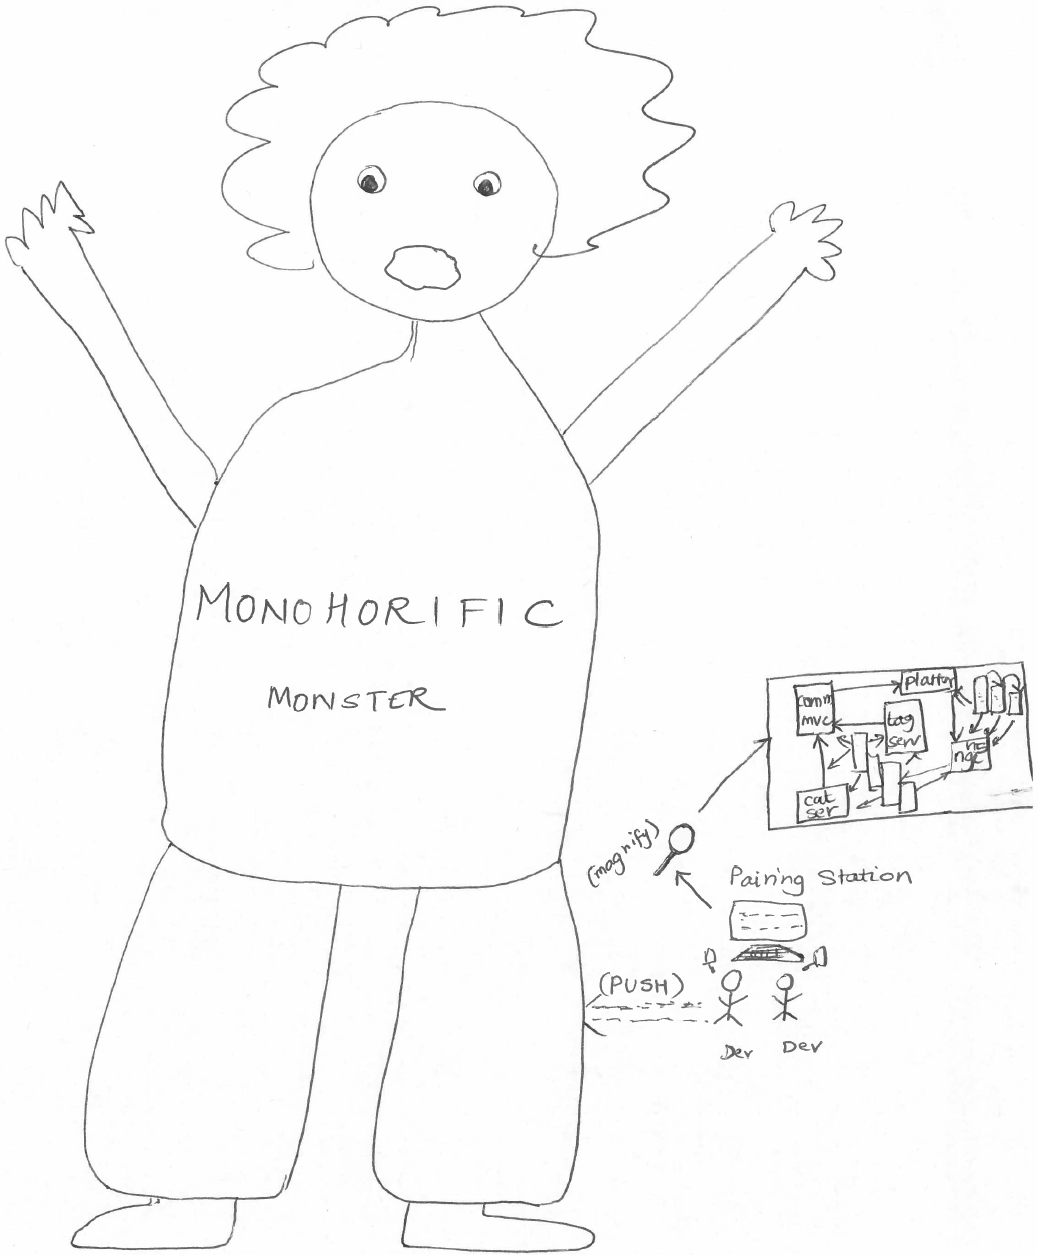 MONOHORIFIC
MONSTER
comm
mvc
platfor
tag
serv
cat
ser
(magnify)
Pairing Station
(PUSH)
Dev
Dev